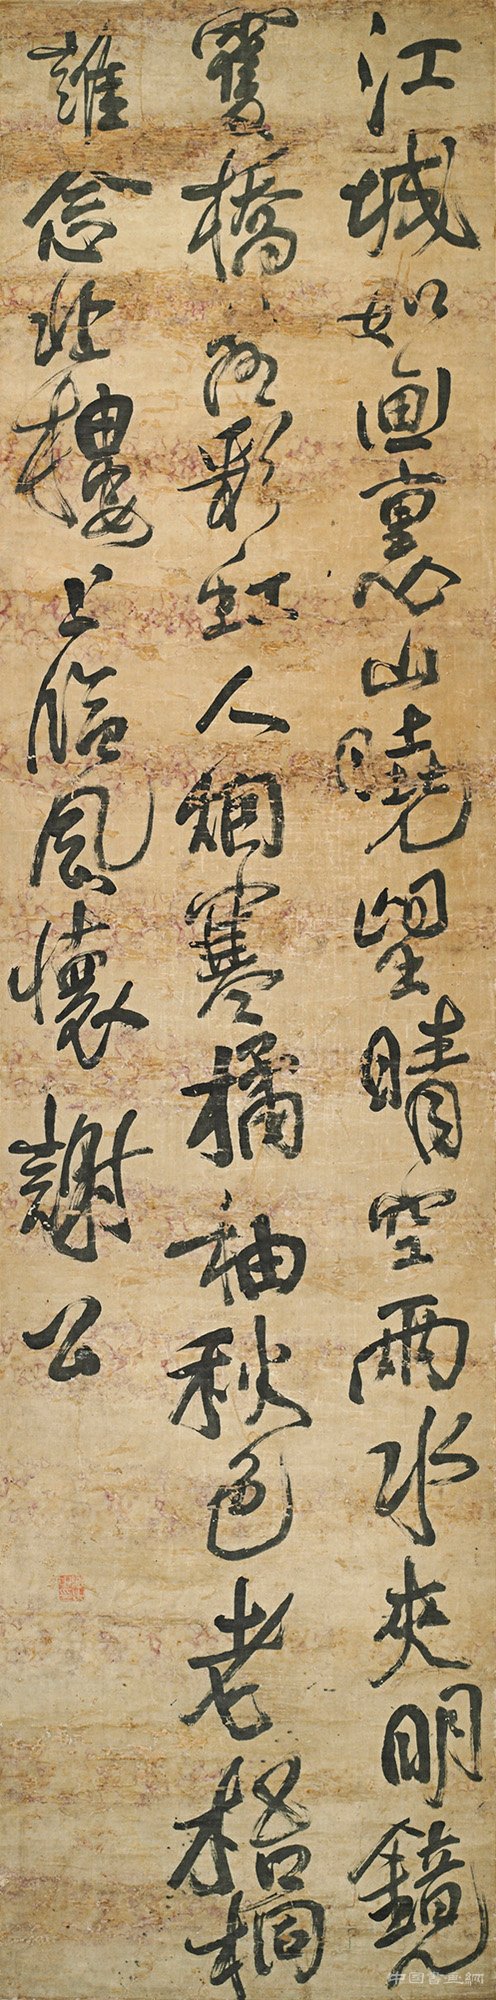 江城如画裏山曉望晴空兩水夾明鏡
雙橋落彩虹人烟寒橘柚秋色老梧桐
誰念北樓上臨風懷謝公
中国書画網